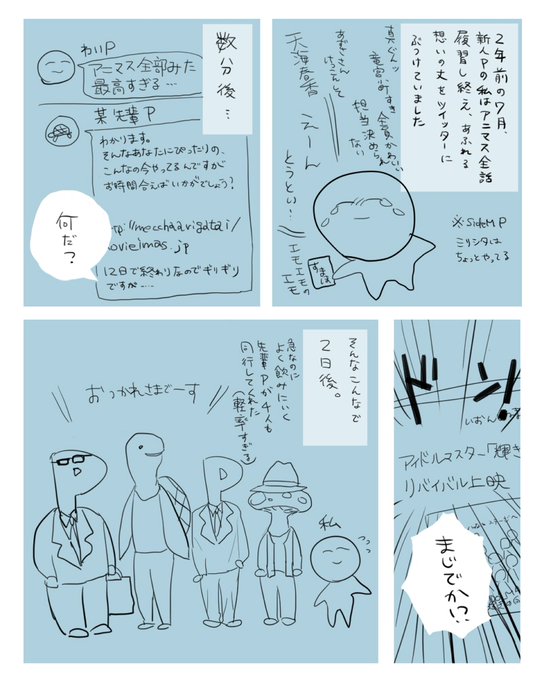 2年前の7月、
新人Pの私はアニマス全話
履習し終え、あふれる
想いの丈をツイッターに
ぶつけていました
竜宮小町すき
あずささん
けっこんして
全員かわいい
担当決められ
ない
天海春香
えーん
とうとい…
エモエモの
エモ
すまほ
※SideM P
ミリシタは
ちょっとやってる
数分後…
わいP
アニマス全部みた
最高すぎる…
某先輩P
わかります。
そんなあなたにぴったりの、
こんなの今やってるんですが
お時間合えばいかがでしょう?
http://mecchaarigatai/
movieimas.jp
12日で終わりなのでギリギリ
ですが…
何だ?
ドンッ
いおん
アイドルマスター「輝き
リバイバル上映
まじでか!?
そんなこんなで
2日後。
急なのに
よく飲みにいく
先輩Pが4人も
同行してくれた
(軽率すぎる)
おつかれさまでーす
私